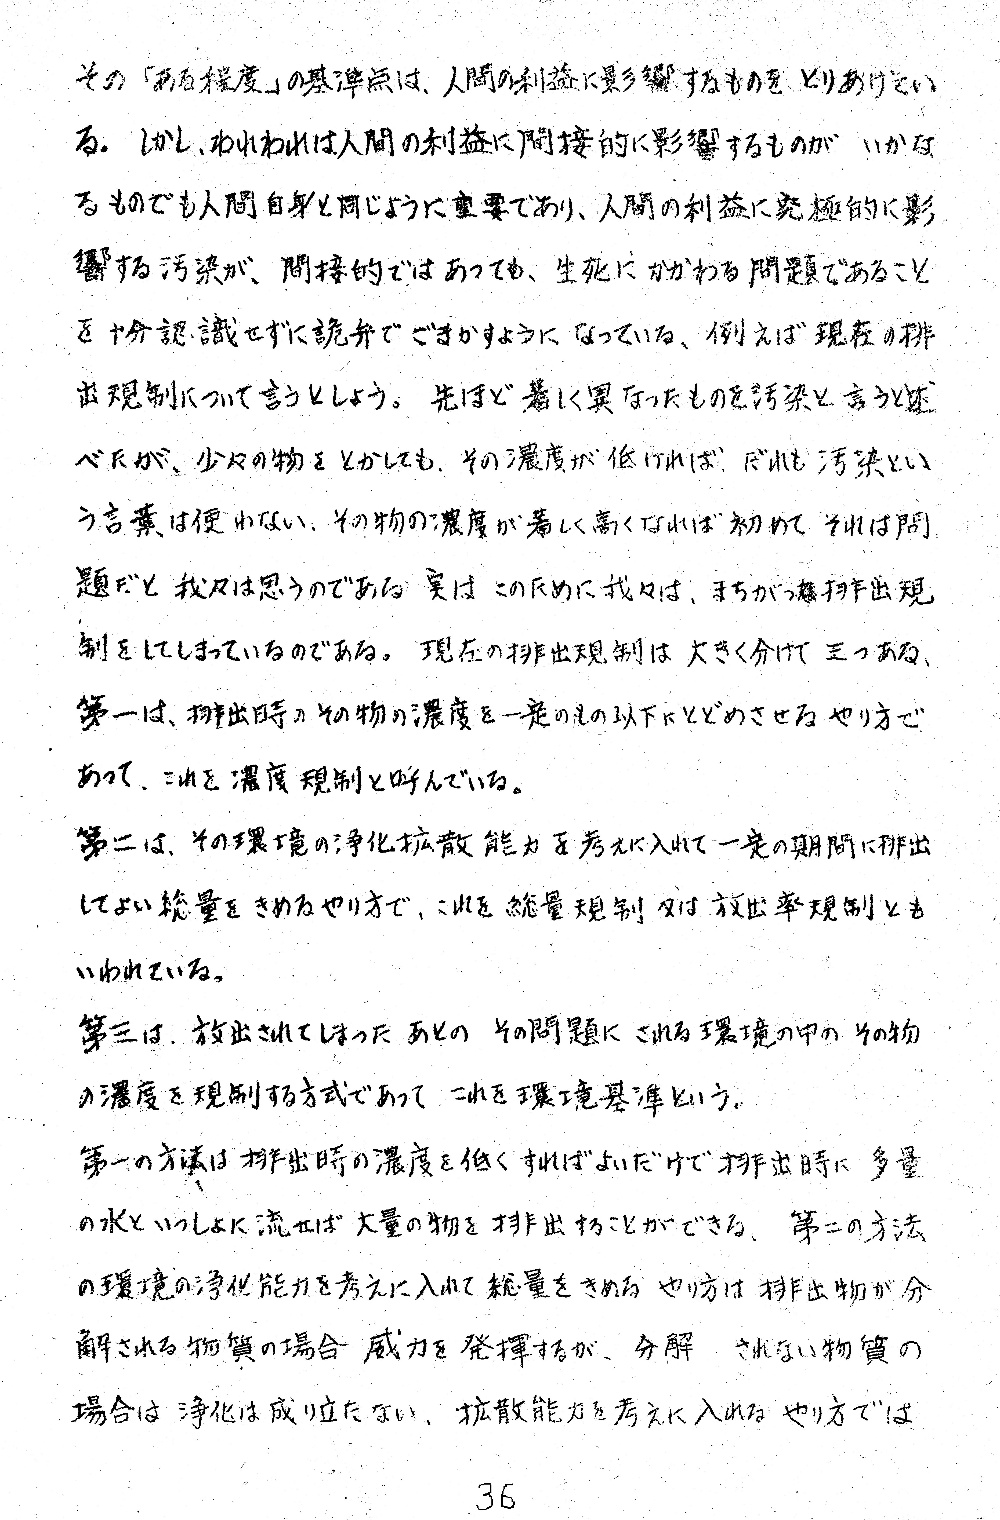 その「ある程度」の基準点は、人間の利益に影響するものをとりあげてい
る。しかし、われわれは人間の利益に間接的に影響するものがいかな
るものでも人間自身と同じように重要であり、人間の利益に究極的に影
響する汚染が、間接的ではあっても、生死にかかわる問題であること
を十分認識せずに詭弁でごまかすようになっている、例えば現在の排
出規制について言うとしよう。先ほど著しく異なったものを汚染と言うと述
べたが、少々の物をとかしても、その濃度が低ければ、だれも汚染とい
う言葉は使わない、その物の濃度が著しく高くなれば初めてそれは問
題だと我々は思うのである 実はこのために我々は、まちがった排出規
制をしてしまっているのである。現在の排出規制は大きく分けて三つある、
第一は、排出時のその物の濃度を一定のもの以下にとどめさせるやり方で
あって、これを濃度規制と呼んでいる。
第二は、その環境の浄化拡散能力を考えに入れて一定の期間に排出
してよい総量をきめるやり方で、これを総量規制又は放出率規制とも
いわれている。
第三は、放出されてしまったあとのその問題にされる環境の中のその物
の濃度を規制する方式であってこれを環境基準という。
第一の方法は排出時の濃度を低くすればよいだけで排出時に多量
の水といっしょに流せば大量の物を排出することができる、第二の方法
の環境の浄化能力を考えに入れて総量をきめるやり方は排出物が分
解される物質の場合威力を発揮するが、分解されない物質の
場合は浄化は成り立たない、拡散能力を考えに入れるやり方では
36